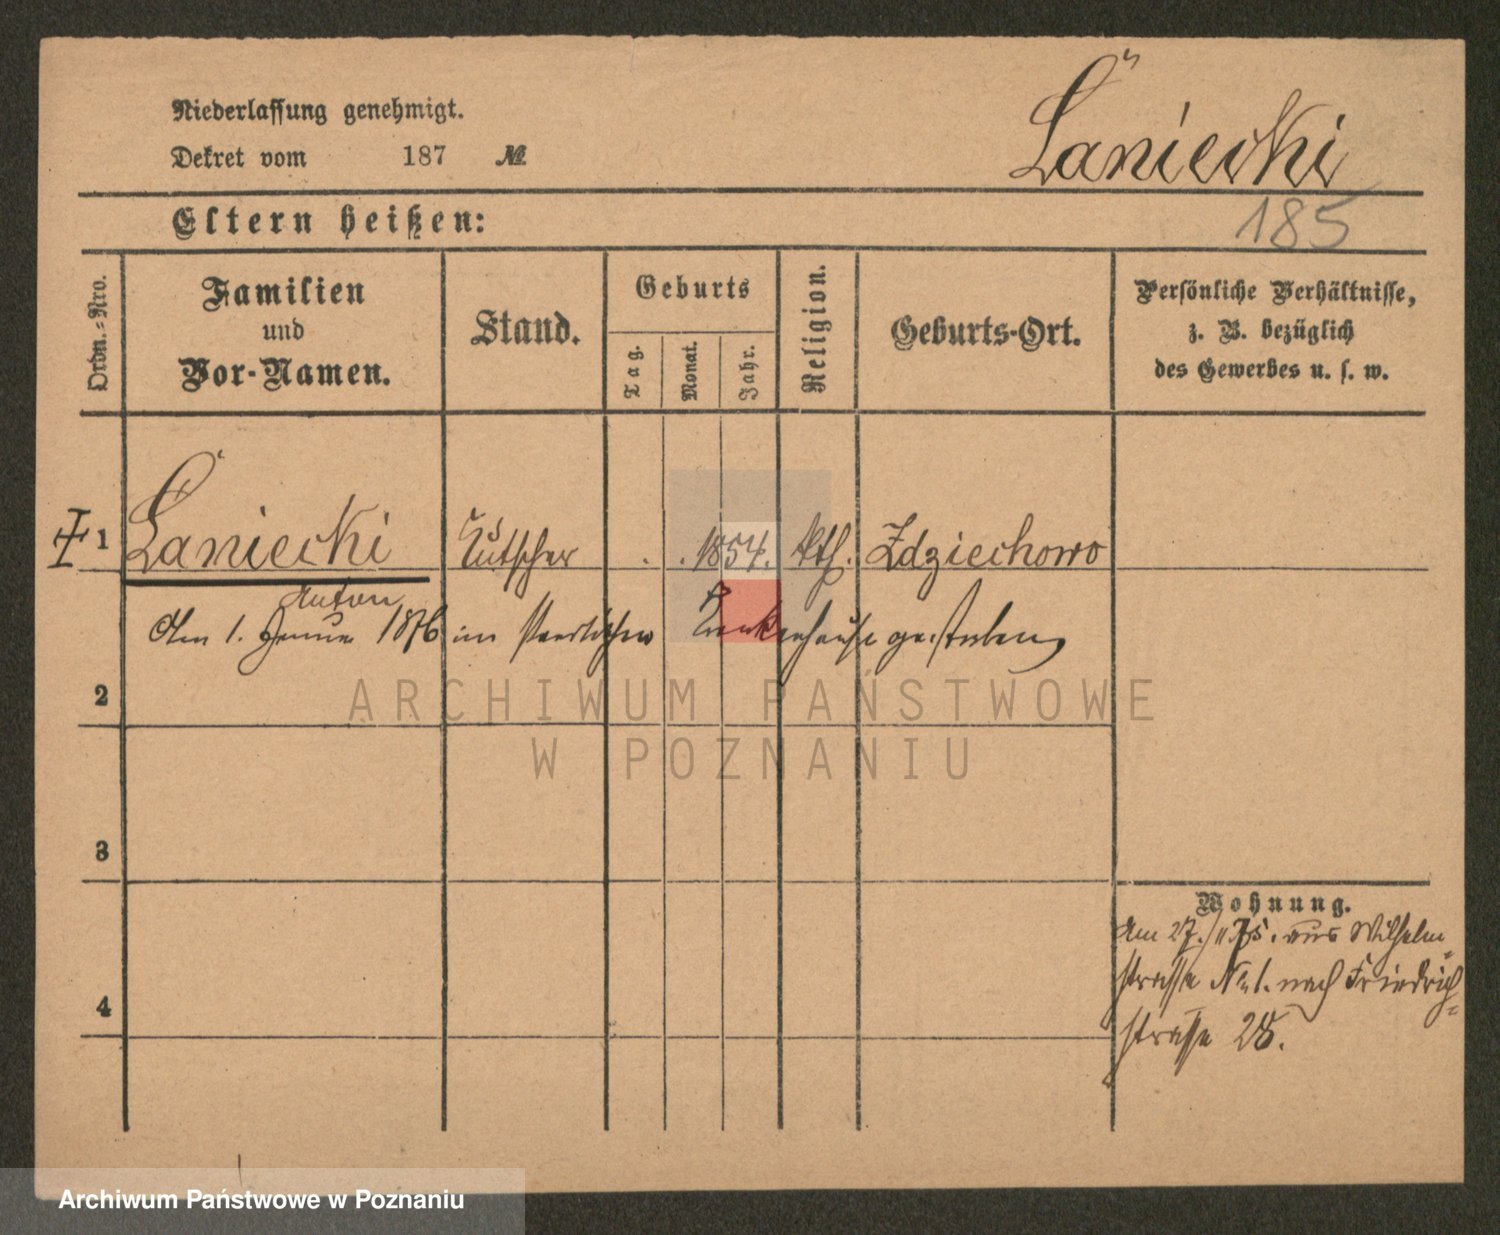 Niederlassung genehmigt.
Dekret vom 187 №
Łaniecki
185
Eltern heißen:
Ordn.-Nro.
Familien
und
Vor-Namen.
Stand.
Geburts
Tag.
Monat.
Jahr.
Religion.
Geburts-Ort.
Persönliche Verhältnisse,
z. B. bezüglich
des Gewerbes u. s. w.
1 Łaniecki Kutscher . . 1854. kth. Zdziechowo
Anton
Am 1. Januar 1876 im städtischen Krankenhause gestorben
2
3
4
Wohnung.
Am 27./11 75. aus Wilhelm-
strasse No 1. nach Friedrich-
strasse 28.
ARCHIWUM PAŃSTWOWE
W POZNANIU
Archiwum Państwowe w Poznaniu